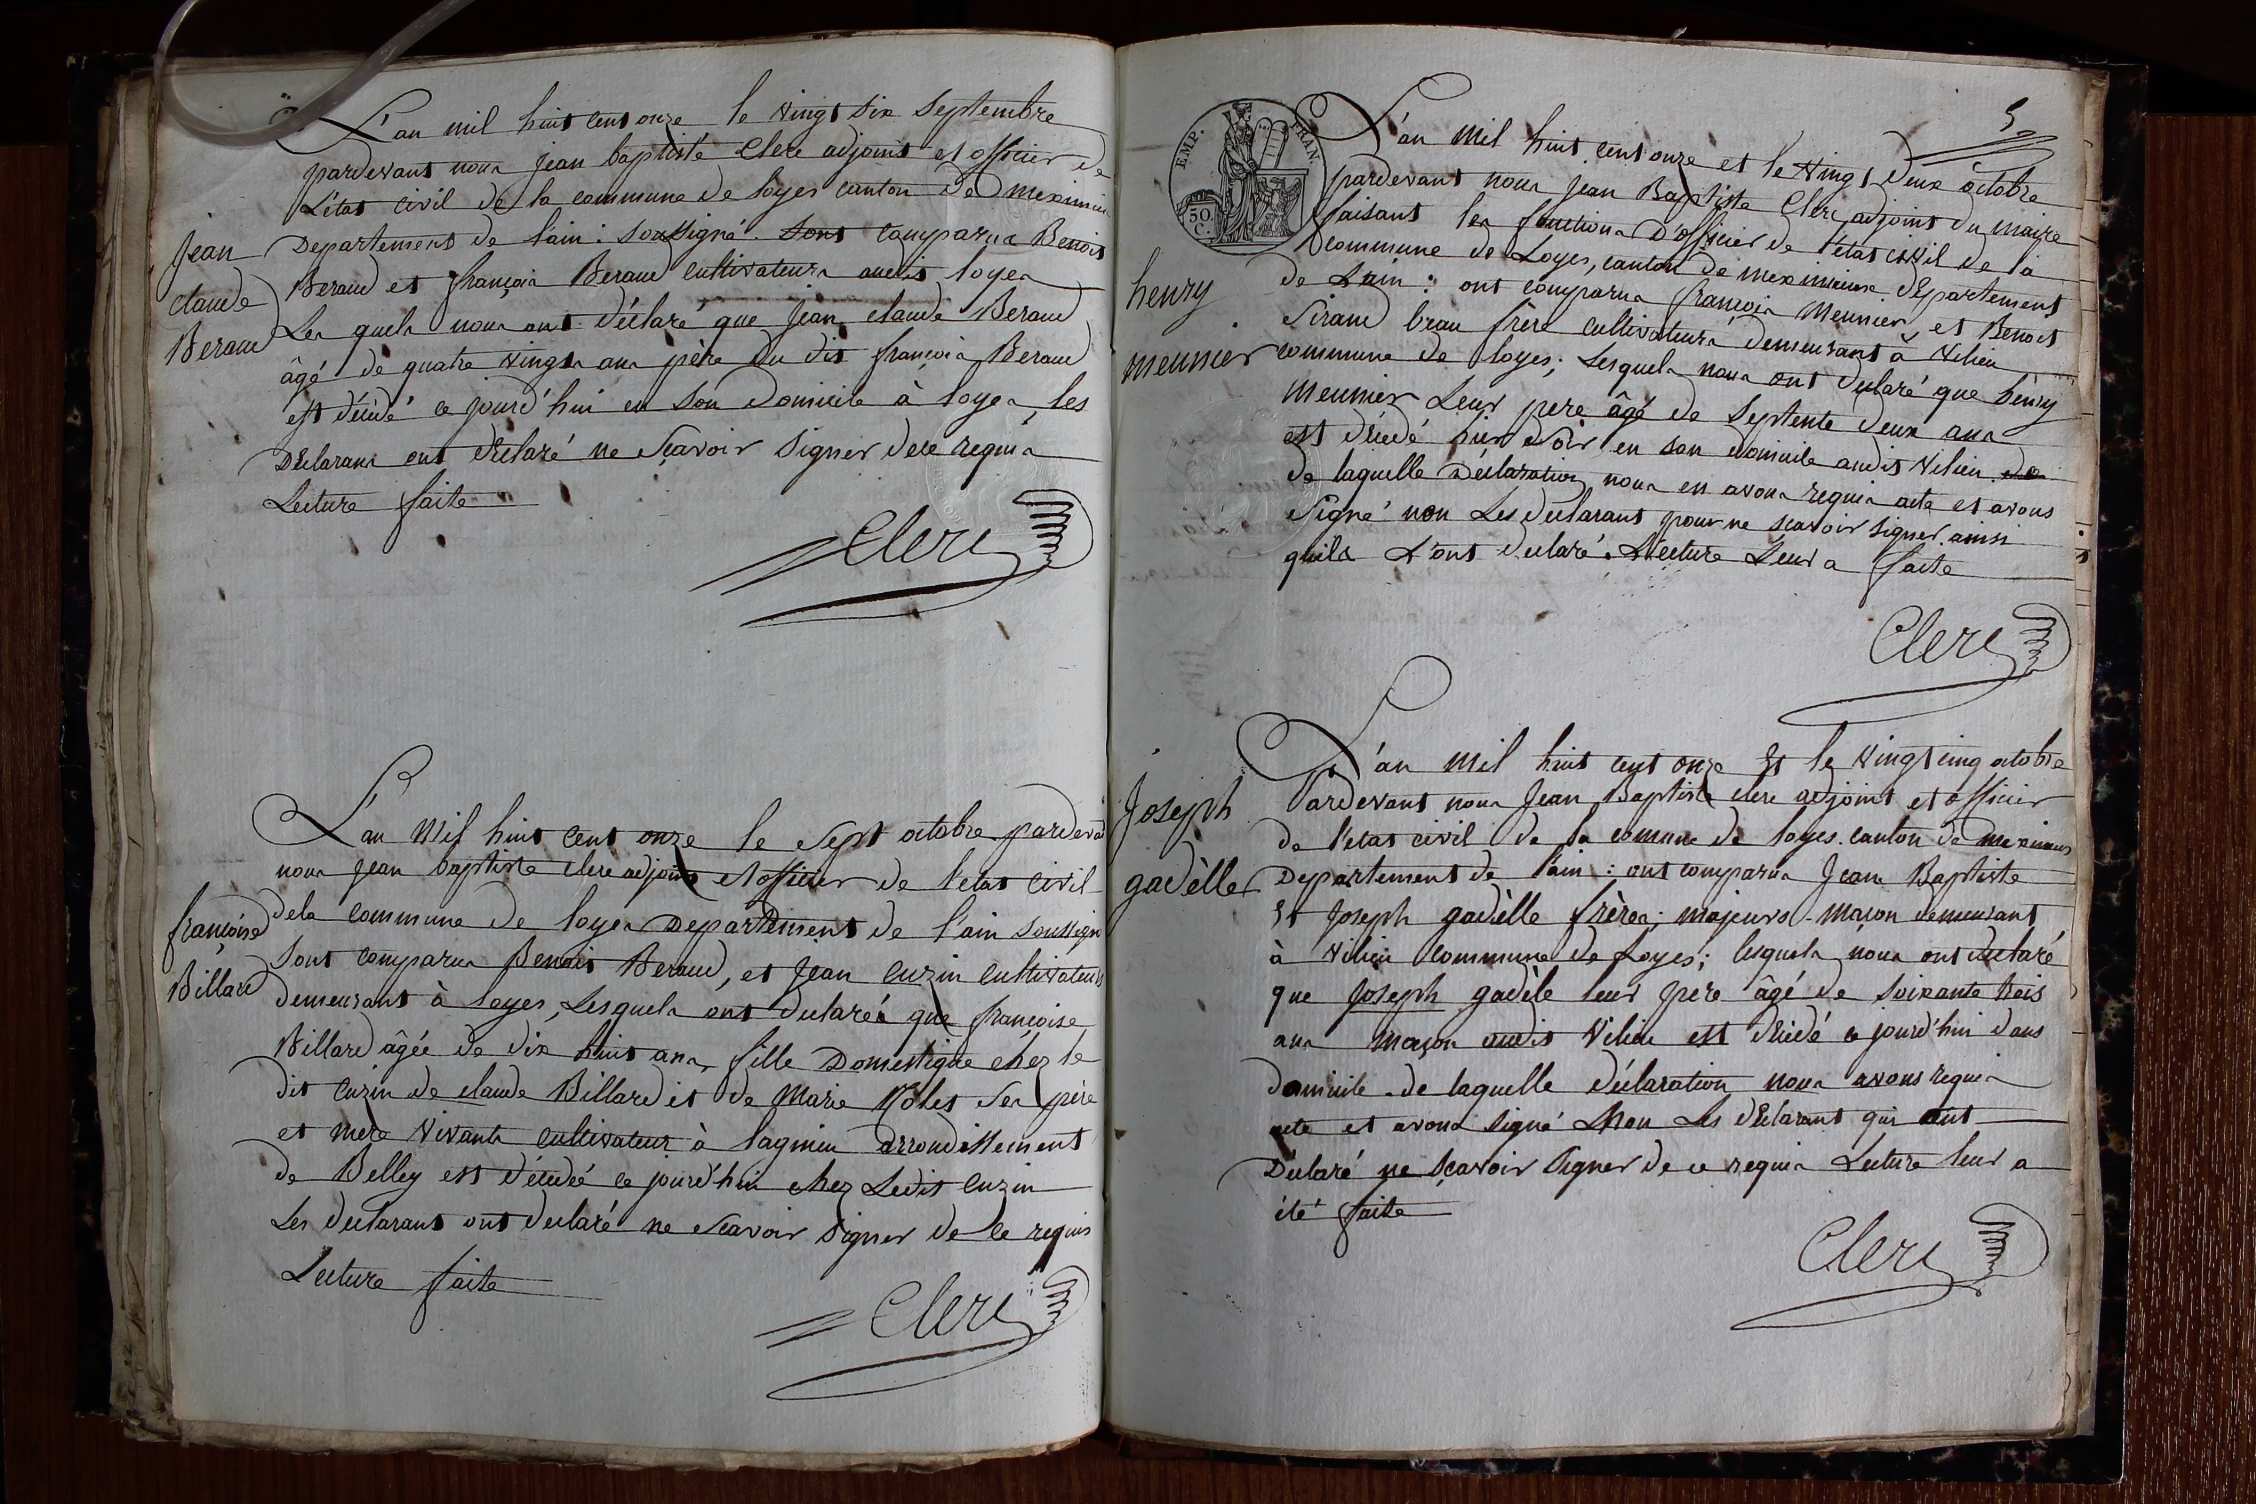 L'an mil huit cent onze le vingt six Septembre
pardevant nous jean baptiste Clerc adjoint et officier de
L'état civil de la commune de loyes canton de meximieu
Departement de l'ain : soussigné. sont comparus Benoit
Beraud et françois Beraud cultivateurs audit loyes
Les quels nous ont déclaré que jean claude Beraud
âgé de quatre vingts ans père du dit françois Beraud
est décédé ce jourd'hui en son domicile à loyes, les
Déclarans ont déclaré ne sçavoir signer de ce requis
Lecture faite
Clerc
Jean
claude
Beraud
L'an mil huit cent onze le sept octobre pardevat
nous jean baptiste clerc adjoint et officier de l'etat civil
dela commune de loyes Departement de l'ain soussigné
sont comparus Benoit Beraud, et jean cuzin cultivateurs
demeurant à loyes, Lesquels ont déclaré que françoise
Billard âgée de dix huit ans, fille Domestique chez le
dit cuzin de claude Billard et de Marie ses père
et mere vivants cultivateur à lagnieu arrondissement
de Belley est décédée ce jourd'hui chez Ledit cuzin
Les declarants ont declaré ne sçavoir signer de ce requis
Lecture faite
Clerc
françoise
Billard
5
EMP. FRAN.
50
C.
L'an mil huit cent onze et le vingt deux octobre
pardevant nous Jean Baptiste Clerc adjoint du maire
faisant les fonctions d'officier de l'etat civil de la
commune de Loyes, canton de meximieux departement
de Lain : ont comparus françois Meunier, et Benoit
Sirand beau frère cultivateurs demeurant à vilieu
commune de loyes; Lesquels nous ont declaré que henry
Meunier Leur pere âgé de septente deux ans
est décédé hier soir en son domicile audit vilieu. de
de laquelle déclaration nous en avons requis acte et avons
signé non Les declarants pour ne scavoir signer ainsi
quils L'ont declaré. Lecture Leur a faite
Clerc
henry
meunier
L'an mil huit cent onze Et le vingt cinq octobre
Pardevant nous Jean Baptiste clerc adjoint et officier
de l'etat civil de la comune de loyes. canton de meximieus
Departement de l'ain : ont comparus Jean Baptiste
Et Joseph gadèlle frères; majeurs. maçon demeurant
à vilieu commune de Loyes; lesquels nous ont declaré
que Joseph gadèle leur pere âgé de soixante trois
ans maçon audit vilieu est décédé ce jourd'hui dans
domicile. de laquelle déclaration nous avons requis
acte et avons signé Non Les déclarant qui ont
Déclaré ne sçavoir signer de ce requis Lecture leur a
été faite
Clerc
Joseph
gadèlle